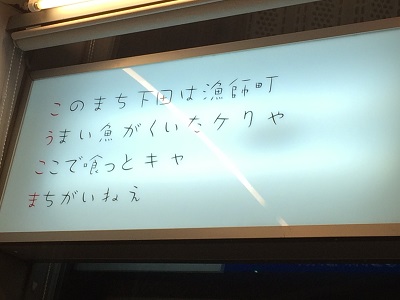 このまち下田は漁師町
うまい魚がくいたケリゃ
ここで喰っとキャ
まちがいねえ